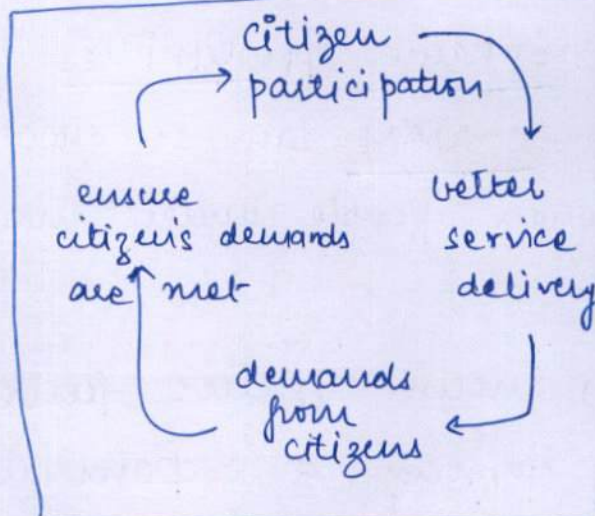 citizen
participation
better
service
delivery
demands
from
citizens
ensure
citizen's demands
are met